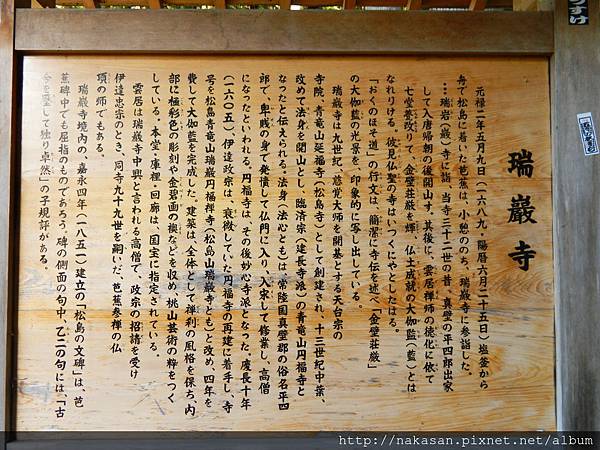 瑞巖寺
元禄二年五月九日(一六八九、陽暦六月二十五日)塩釜から
舟で松島に着いた芭蕉は、小憩ののち、瑞巖寺に参詣した。
…瑞岩(巖)寺に詣。当寺三十二世の昔、真壁の平四郎出家
して入唐帰朝の後開山す。其後に、雲居禅師の徳化に依て
七堂甍改りて、金壁荘厳光を輝、仏土成就の大伽藍(藍)とは
なれりける。彼見仏聖の寺はいづくにやとしたはる。
「おくのほそ道」の行文は、簡潔に寺伝を述べ「金壁荘厳」
の大伽藍の光景を、印象的に写し出している。
瑞巖寺は九世紀、慈覚大師を開基とする天台宗の
寺院、青竜山延福寺(松島寺)として創建され、十三世紀中葉、
改めて法身を開山とし、臨済宗(建長寺派)の青竜山円福寺と
なったと伝えられる。法身(法心とも)は、常陸国真壁郡の俗名平四
郎で、卑賎の身で発憤して仏門に入り、入宋して修業し、高僧
になったといわれる。円福寺は、その後妙心寺派となった。慶長十年
(一六〇五)、伊達政宗は、衰微していた円福寺の再建に着手し、寺
号を松島青竜山瑞巖円福禅寺(松島山瑞巖寺とも)と改め、四年を
費して大伽藍を完成した。建築は、全体として禅刹の風格を保ち、内
部に極彩色の彫刻や金碧画の襖などを収め、桃山芸術の粋をつく
している。本堂、庫裡、回廊は、国宝に指定されている。
雲居は瑞巖寺中興と言われる高僧で、政宗の招請を受け
伊達忠宗のとき、同寺九十九世を嗣いだ、芭蕉参禅の仏
頂の師でもある。
瑞巖寺境内の、嘉永四年(一八五一)建立の「松島の文碑」は、芭
蕉碑中でも屈指のものであろう。碑の側面の句中、乙二の句には、「古
今を圧して独り卓然」の子規評がある。
http://nakasan.pixnet.net/album